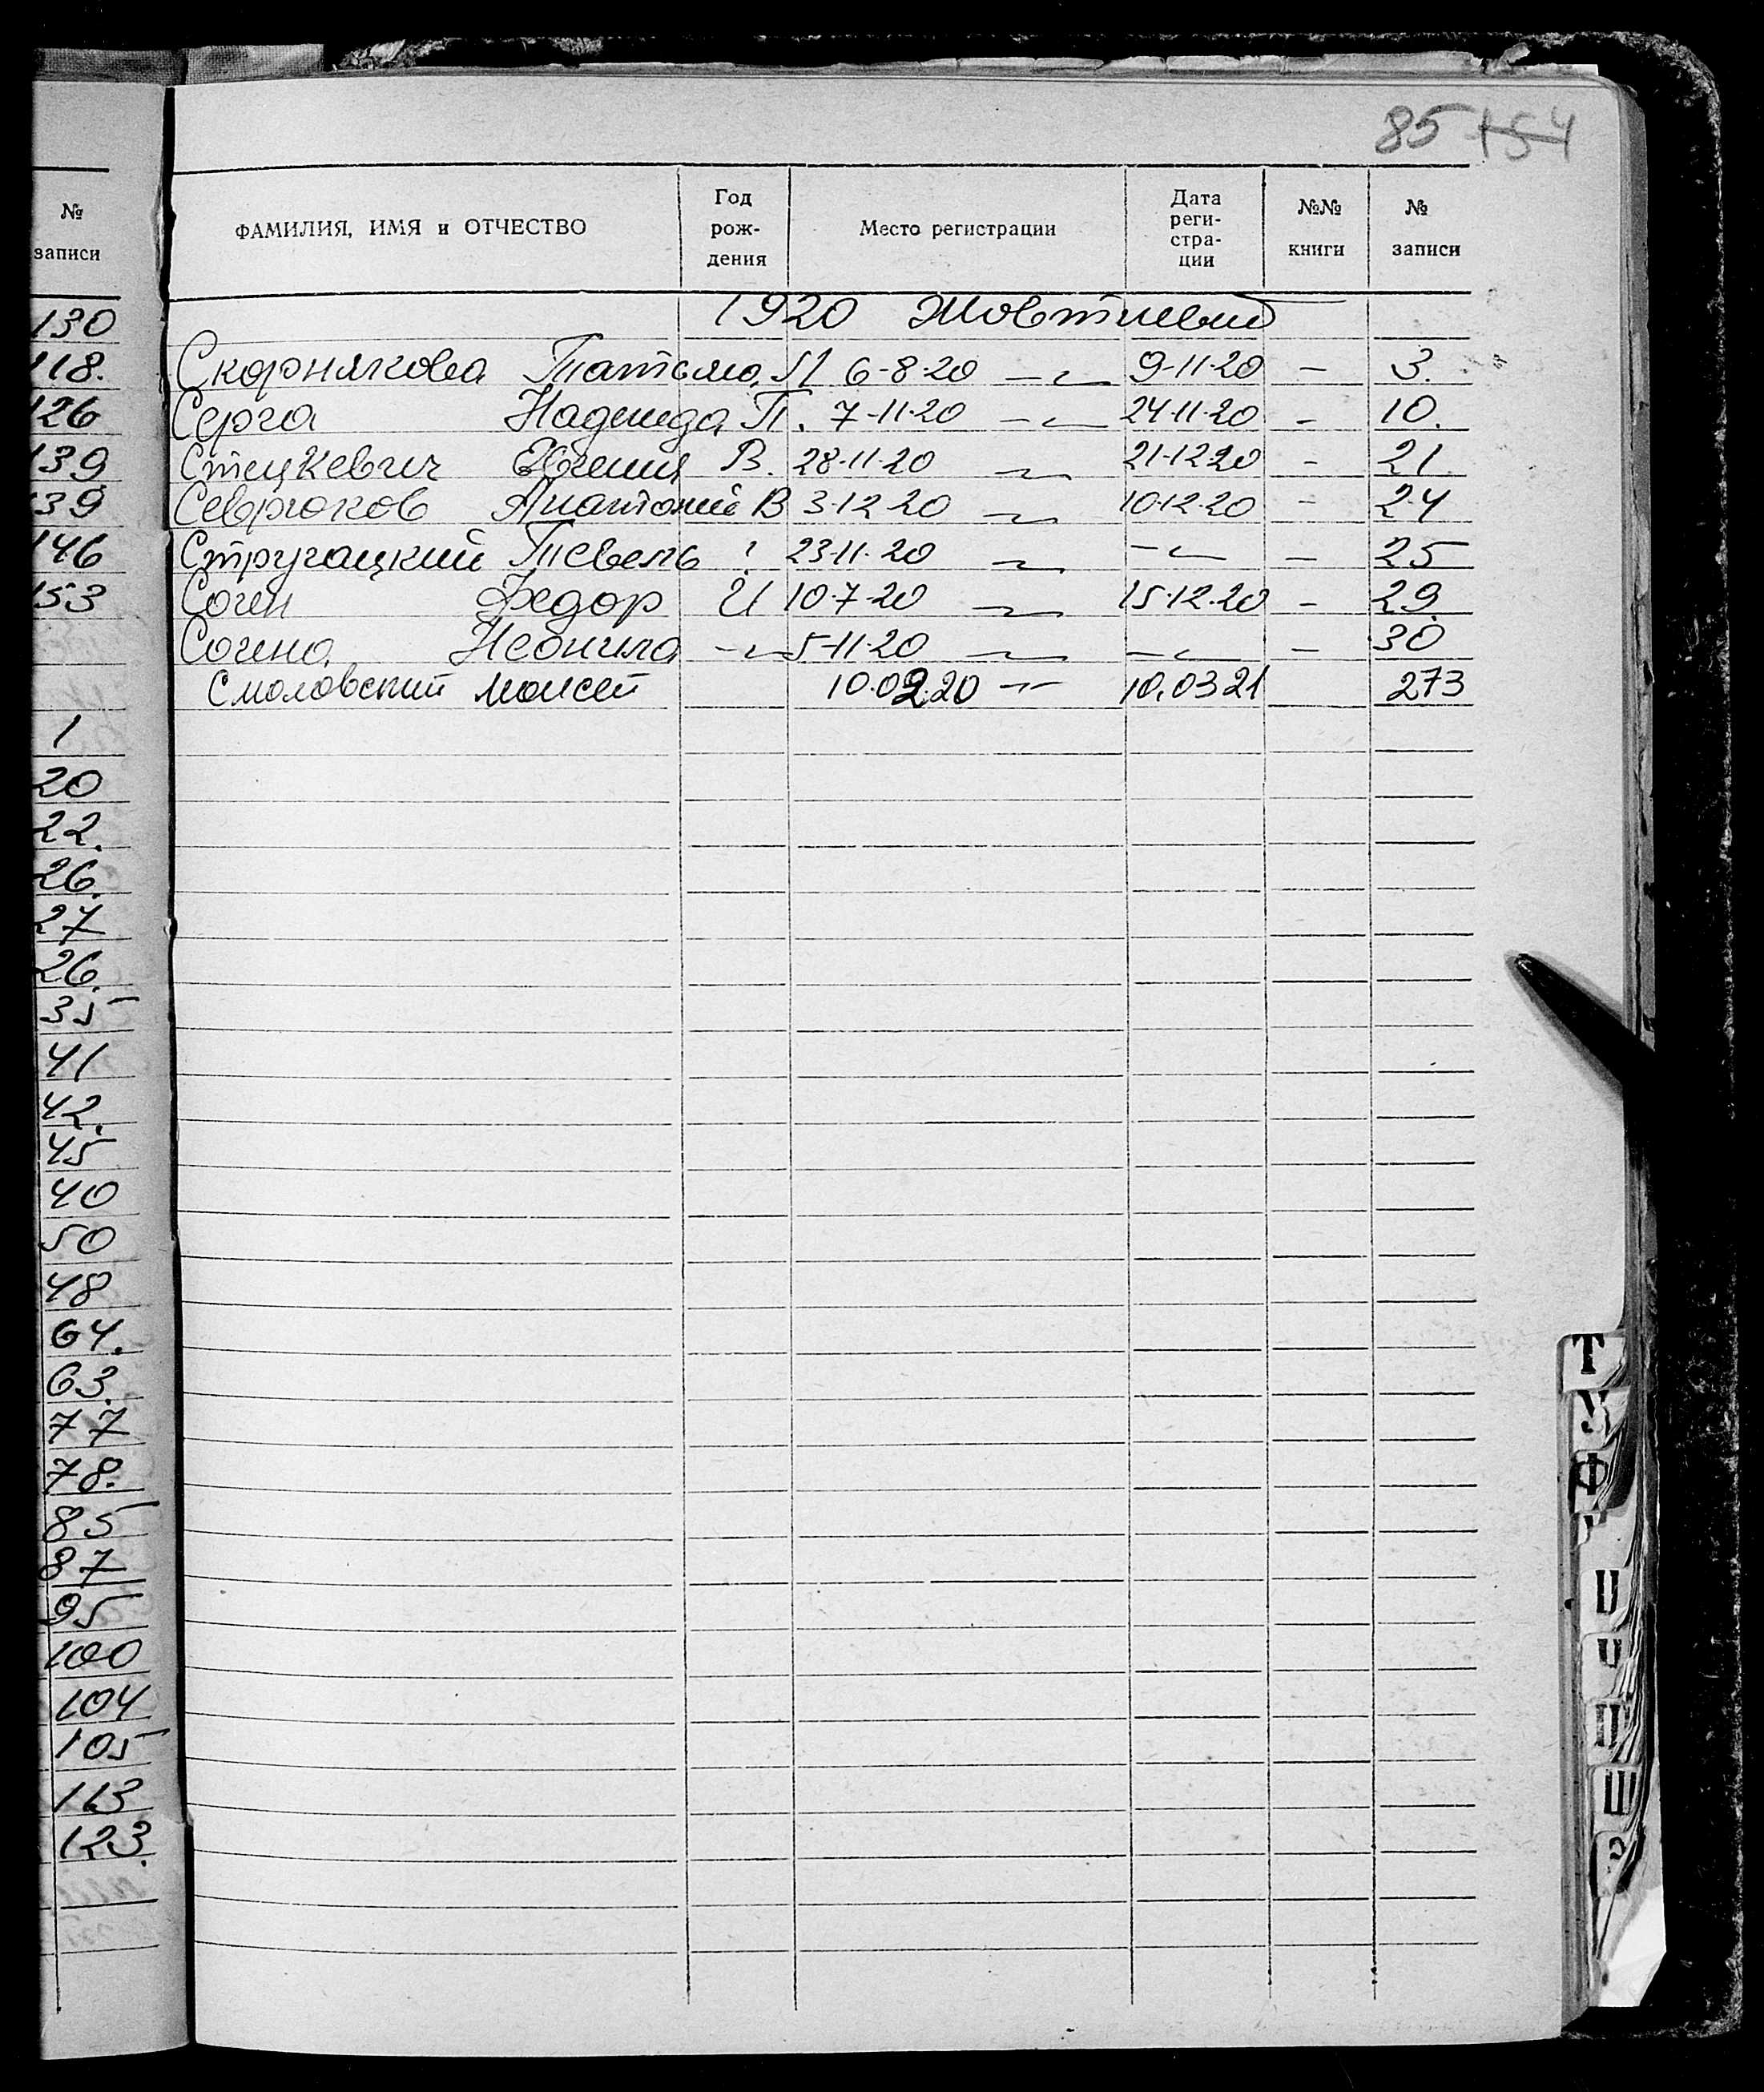 85 154
№ записи
ФАМИЛИЯ, ИМЯ и ОТЧЕСТВО Год рож- дения Место регистрации Дата реги- стра- ции №№ книги № записи
130
118.
126
139
139
146
153
1
20
22.
26.
27
26.
35
41
42.
45
40
50
48
64.
63.
77
78.
85
87
95
100
104
105
113
123.
1920 Жовтневый
Скорнякова Татьяна 6-8-20 – " – 9-11-20 – 3.
Серга Надежда П. 7-11-20 – " – 24-11-20 – 10.
Стецкевич Евгения В. 28-11-20 – " – 21-12-20 – 21
Севрюков Анатолий В 3-12-20 – " – 10-12-20 – 24
Стругацкий Тевель ? 23-11-20 – " – – " – – 25
Согин Федор И 10-7-20 – " – 15-12-20 – 29
Согина Неонила – " – 5-11-20 – " – – " – – 30
Смоловский Моисей 10.02.20 – " – 10.03 21 273
Т
У
Ф
Ш